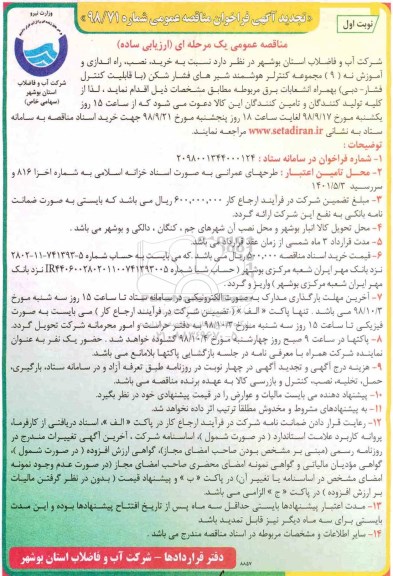 «تجدید آگهی فراخوان مناقصه عمومی شماره ۹۸/۷۱»
نوبت اول
وزارت نیرو
شرکت آب و فاضلاب
استان بوشهر
(سهامی خاص)
مناقصه عمومی یک مرحله ای (ارزیابی ساده)
شرکت آب و فاضلاب استان بوشهر در نظر دارد نسبت به خرید، نصب، راه اندازی و
آموزش نه (۹) مجموعه کنترلر هوشمند شیر های فشار شکن (با قابلیت کنترل
فشار- دبی) بهمراه انشعابات برق مربوطه مطابق مشخصات ذیل اقدام نماید، لذا از
کلیه تولید کنندگان و تامین کنندگان این کالا دعوت می شود که از ساعت ۱۵ روز
یکشنبه مورخ ۹۸/۹/۱۷ لغایت ساعت ۱۸ روز پنجشنبه مورخ ۹۸/۹/۲۱ جهت خرید اسناد مناقصه به سامانه
ستاد به نشانی www.setadiran.ir مراجعه نمایند.
توضیحات :
۱- شماره فراخوان در سامانه ستاد : ۲۰۹۸۰۰۱۳۴۴۰۰۰۱۲۴
۲- محل تامین اعتبار : طرحهای عمرانی به صورت اسناد خزانه اسلامی به شماره اخزا ۸۱۶ و
سررسید ۱۴۰۱/۵/۳
۳- مبلغ تضمین شرکت در فرآیند ارجاع کار ۶۰۰,۰۰۰,۰۰۰ ریال می باشد که بایستی به صورت ضمانت
نامه بانکی به نفع این شرکت ارائه گردد.
۴- محل تحویل کالا انبار بوشهر و محل نصب آن شهرهای جم ، کنگان ، دالکی و بوشهر می باشد .
۵- مدت قرارداد ۳ ماه شمسی از زمان عقد قرارداد می باشد.
۶- قیمت خرید اسناد مناقصه ۵۰۰,۰۰۰ ریال می باشد .که می بایست به حساب شماره ۵-۷۴۱۳۹۳-۱۱-۲۸۰۲
نزد بانک مهر ایران شعبه مرکزی بوشهر ( حساب شبا شماره IR۴۴۰۶۰۰۲۸۰۲۰۱۱۰۰۷۴۱۳۹۳۰۰۵ نزد بانک
مهر ایران شعبه مرکزی بوشهر ) واریز و گردد .
۷- آخرین مهلت بارگذاری مدارک به صورت الکترونیکی در سامانه ستاد تا ساعت ۱۵ روز سه شنبه مورخ
۹۸/۱۰/۳ می باشد. تنها پاکت « الف » ( تضمین شرکت در فرآیند ارجاع کار ) می بایست به صورت
فیزیکی تا ساعت ۱۵ روز سه شنبه مورخ ۹۸/۱۰/۳ به دفتر حراست و امور محرمانه شرکت تحویل گردد.
۸- پاکتها در ساعت ۹ صبح روز چهارشنبه مورخ ۹۸/۱۰/۴ گشوده خواهد شد . حضور یک نفر به عنوان
نماینده شرکت همراه با معرفی نامه در جلسه بازگشایی پاکتها بلامانع می باشد.
۹- هزینه درج آگهی و تجدید آگهی در چهار نوبت در روزنامه طبق تعرفه آزاد و در سامانه ستاد، بارگیری،
حمل، تخلیه، نصب، کنترل و بازرسی کالا به عهده برنده مناقصه می باشد.
۱۰- پیشنهاد دهنده می بایست مالیات و عوارض را در قیمت پیشنهادی خود در نظر بگیرد.
۱۱- به پیشنهادهای مشروط و مخدوش مطلقا ترتیب اثر داده نخواهد شد.
۱۲- رعایت قرار دادن ضمانت نامه شرکت در فرآیند ارجاع کار در پاکت « الف »، اسناد دریافتی از کارفرما،
پروانه کاربرد علامت استاندارد ( در صورت شمول )، اساسنامه شرکت ، آخرین آگهی تغییرات مندرج در
روزنامه رسمی (مبنی بر مشخص بودن صاحب امضای مجاز)، گواهی ارزش افزوده ( در صورت شمول )،
گواهی مؤدیان مالیاتی و گواهی نمونه امضای محضری صاحب امضای مجاز (در صورت عدم وجود نمونه
امضای مشخص در اساسنامه یا تغییر آن) در پاکت « ب » و پیشنهاد قیمت (بدون در نظر گرفتن مالیات
بر ارزش افزوده ) در پاکت « ج » الزامی می باشد.
۱۳- مدت اعتبار پیشنهادها بایستی حداقل سه ماه پس از تاریخ افتتاح پیشنهادها بوده و این مدت
بایستی برای سه ماه دیگر نیز قابل تمدید باشد
۱۴- سایر اطلاعات و مشخصات مربوطه در اسناد مناقصه مندرج می باشد .
دفتر قراردادها – شرکت آب و فاضلاب استان بوشهر
۸۸۵۷